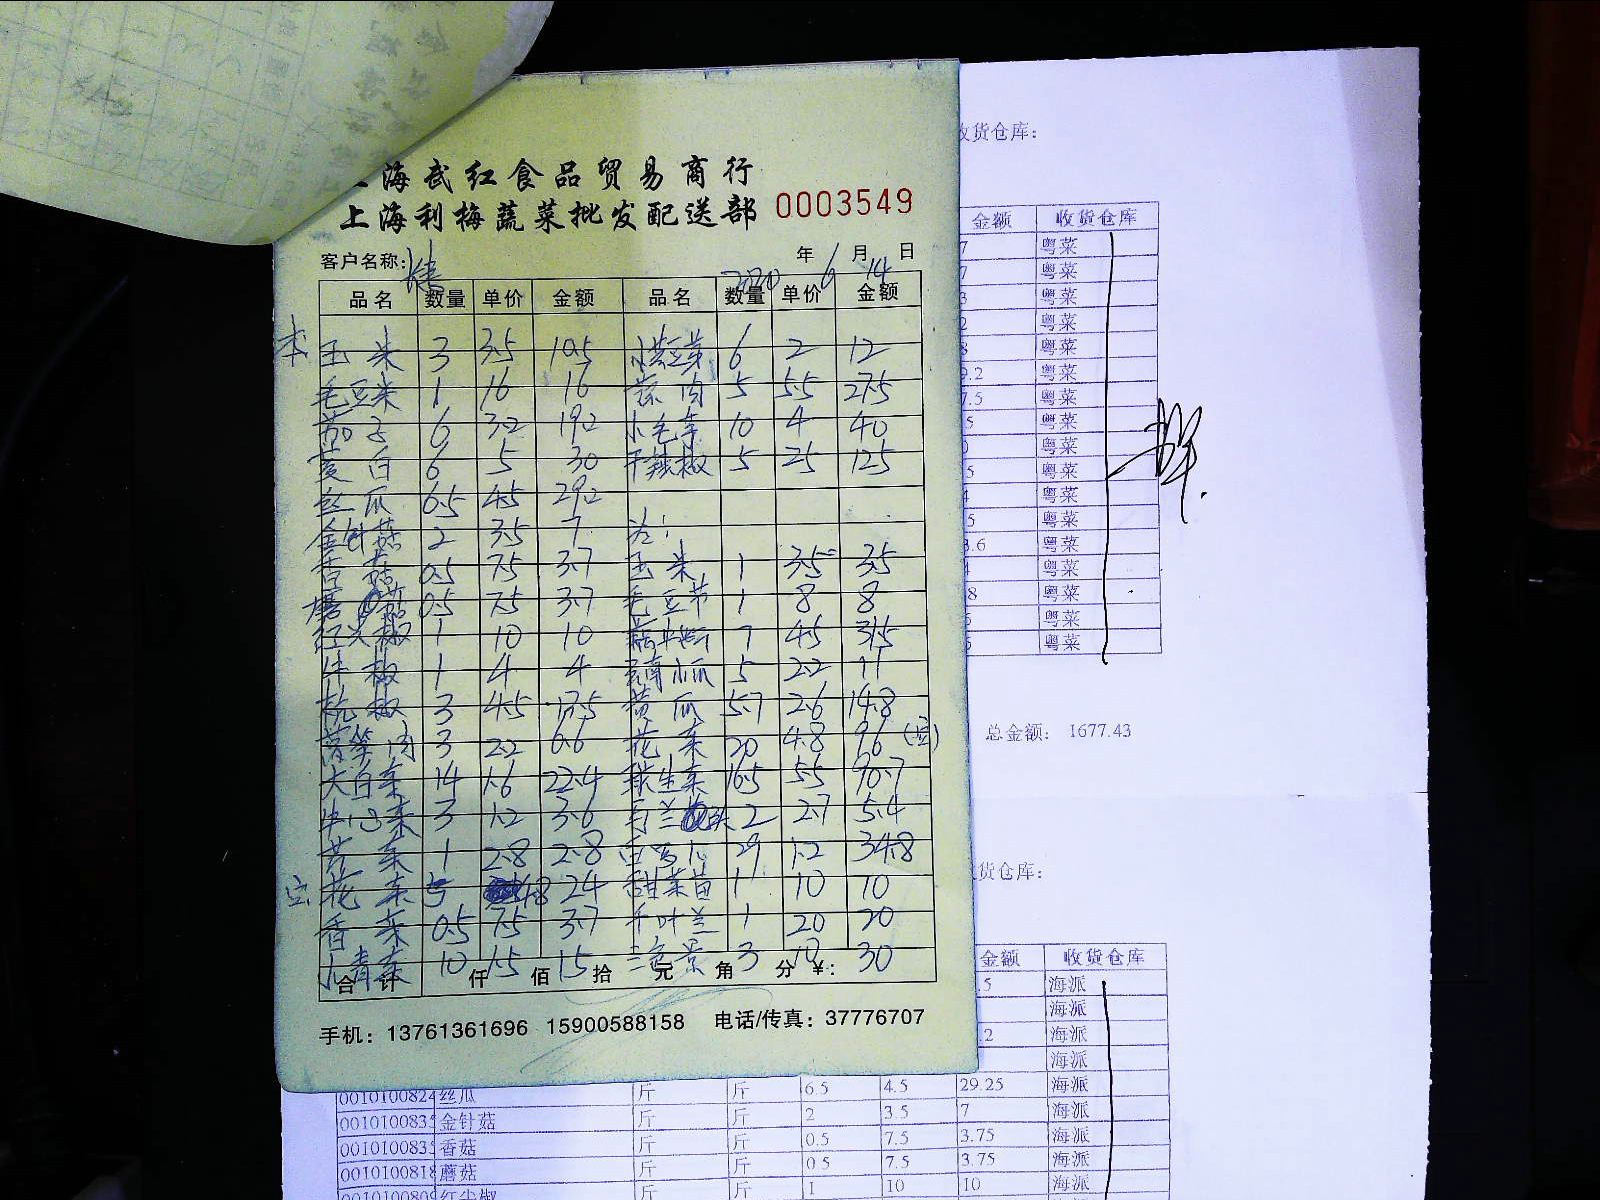 海武红食品贸易商行
上海利梅蔬菜批发配送部 0003549
客户名称:
2020年6月14日
品名 数量 单价 金额 品名 数量 单价 金额
本 玉米 3 3.5 10.5 6 2 12
毛豆米 1 16 16 蒜肉 5 5.5 27.5
茄子 6 3.2 19.2 小毛芋 10 4 40
茭白 6 5 30 干辣椒 5 25 125
丝瓜 6.5 4.5 29.2
金针菇 2 3.5 7
香菇 0.5 7.5 3.7 玉米 1 3.5 3.5
蘑菇 0.5 7.5 3.7 毛豆节 1 8 8
红尖椒 1 10 10 7 4.5 31.5
1 4 4 云南小瓜 5 2.2 11
杭椒 3 4.5 黄瓜 5.7 2.6 14.8
莴笋肉 3 2.2 6.6 花菜 20 4.8 96
大白菜 14 1.6 22.4 球生菜 16.5 5.5 90.7
3 1.2 3.6 马兰头 2 2.7 5.4
1 2.8 2.8 29 1.2 34.8
花菜 5 4.8 24 甜菜苗 1 10 10
香菜 0.5 7.5 3.7 千叶兰 1 20 20
小青菜 10 1.5 15 三色景 3 10 30
合计 仟 佰 拾 元 角 分 ¥:
手机: 13761361696 15900588158 电话/传真: 37776707
收货仓库:
金额 收货仓库
7 粤菜
7 粤菜
3 粤菜
2 粤菜
8 粤菜
.2 粤菜
7.5 粤菜
5 粤菜
粤菜
5 粤菜
4 粤菜
5 粤菜
3.6 粤菜
粤菜
8 粤菜
粤菜
粤菜
总金额: 1677.43
货仓库:
金额 收货仓库
.5 海派
海派
.2 海派
海派
0010100824 丝瓜 斤 斤 6.5 4.5 29.25 海派
001010083 金针菇 斤 斤 2 3.5 7 海派
001010083 香菇 斤 斤 0.5 7.5 3.75 海派
0010100818 蘑菇 斤 斤 0.5 7.5 3.75 海派
001010080 红尖椒 斤 斤 1 10 10 海派